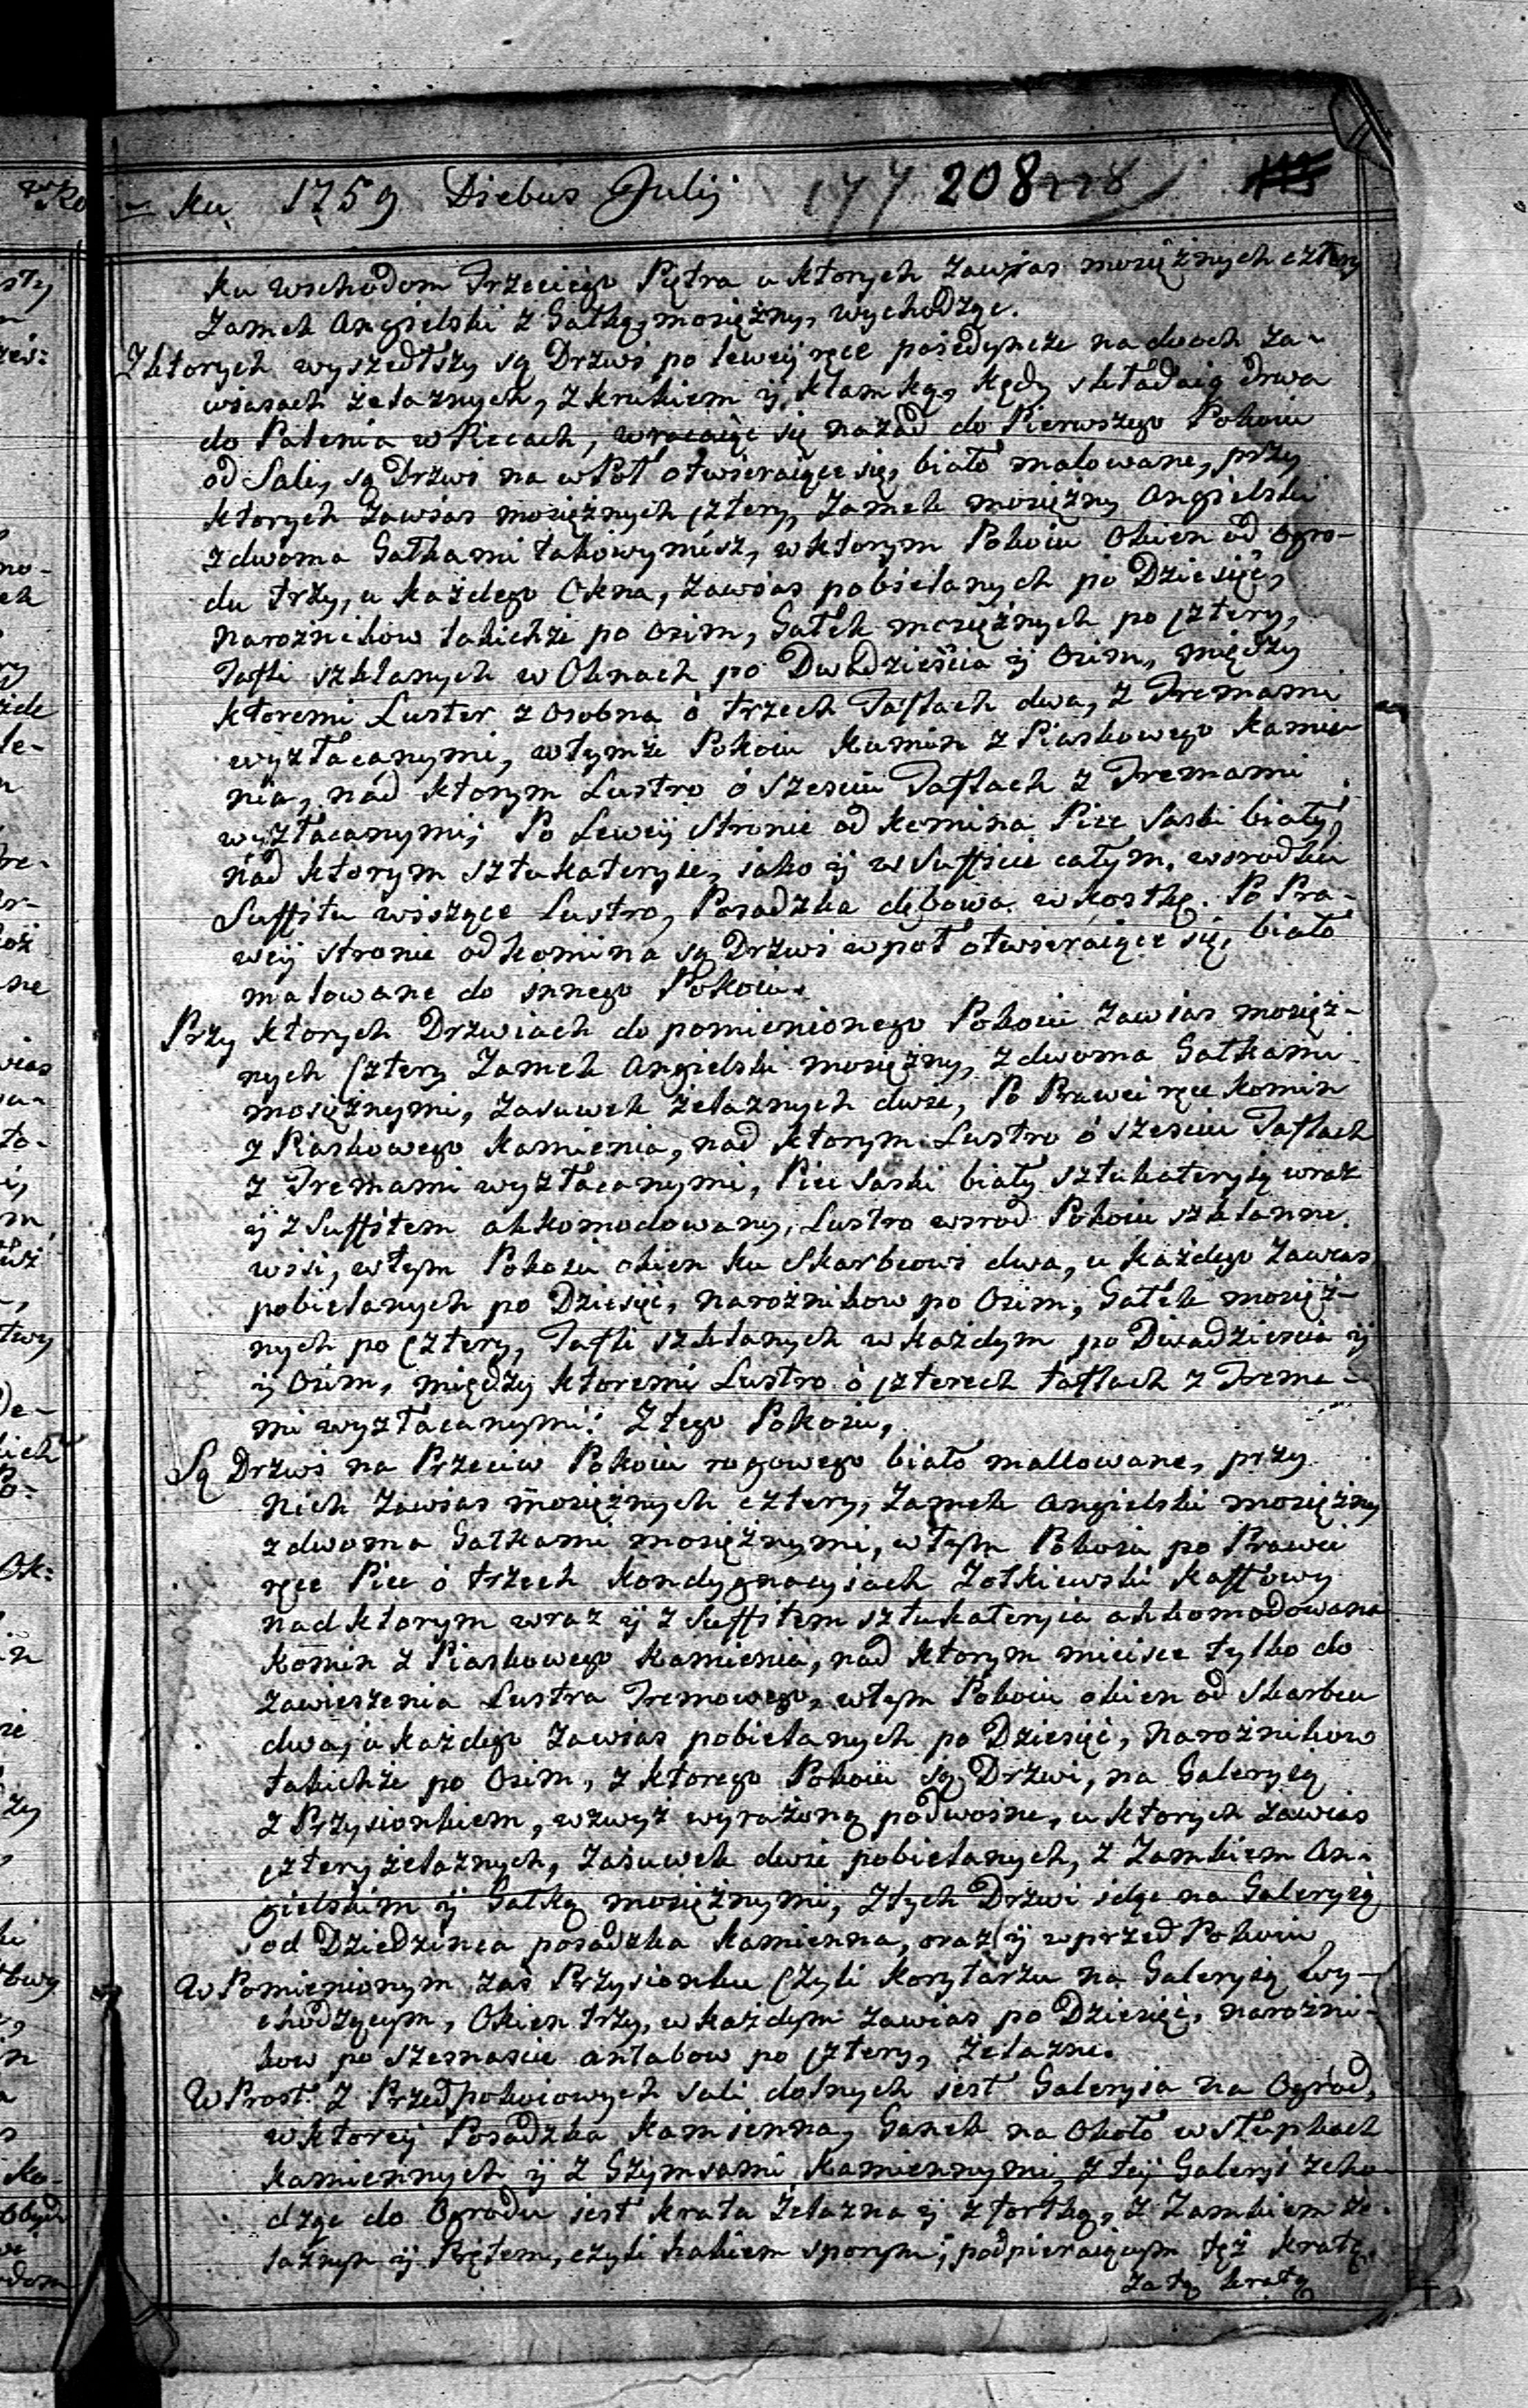 ku 1759 Diebus Julij 177 208
ku wschodom Trzeciego Piętra u ktorych zawias mosiężnych cztery
Zamek Angielski z Gałką mosiężny, wychodząc.
Z ktorych wyszedłszy są Drzwi po lewey ręce poiedyńcze na dwoch za-
wiasach żelaznych, z krukiem ÿ klamką, kędy składaią Drwa
do Palenia w Piecach, wracaiąc się nazad do Pierwszego Pokoiu
od Sali, są Drzwi na wpoł otwieraiące się, biało malowane, przy
ktorych zawias mosiężnych cztery, Zamek mosiężny Angielski
z dwoma Gałkami takowymisz, w ktorym Pokoiu Okien od Ogro-
du trzy, u każdego Okna, zawias pobielanych po Dziesięć,
narożnikow takichże po Osim, Gałek mosiężnych po cztery,
Tafli szklanych w Oknach po Dwadzieścia ÿ Osim, między
ktoremi Luster z osobna o trzech Taflach dwa, z Tremami
wyzłacanymi, w tymże Pokoiu Kamin z Piaskowego Kamie
nia, nad ktorym Lustro o sześciu Taflach z Tremami
wyzłacanymi; Po Lewey stronie od Komina Piec Saski biały,
nad ktorym sztukaterye, iako ÿ w Sufficie całym, w srodku
Suffitu wiszące Lustro, Posadzka dębowa w kostkę. Po Pra-
weÿ stronie od komina są Drzwi wpoł otwieraiące się, biało
malowane do innego Pokoiu.
Przy ktorych Drzwiach do pomienionego Pokoiu zawias mosięż-
nych cztery Zamek Angielski mosiężny, z dwoma Gałkami
mosiężnymi, zasuwek żelaznych dwie, Po Prawei ręce komin
z Piaskowego Kamienia, nad ktorym Lustro o sześciu Taflach
z Tremami wyzłacanymi, Piec Saski biały sztukateryią wraz
ÿ z Suffitem akkomodowany, Lustro wsrod Pokoiu szklanne
wisi, w tym Pokoiu okien ku Skarbcowi dwa, u każdego zawias
pobielanych po Dziesięć, narożnikow po Osim, Gałek mosięż-
nych po cztery, Tafli szklanych w każdym po Dwadzieścia ÿ
ÿ Osim, między ktoremi Lustro o czterech taflach z Trema-
mi wyzłacanymi: Z tego Pokoiu,
Są Drzwi na Przeciw Pokoiu rogowego biało mallowane, przy
nich zawias mosiężnych cztery, Zamek Angielski mosiężny
z dwoma Gałkami mosiężnymi, w tym Pokoiu po Prawei
ręce Piec o trzech kondygnacyiach Żołkiewski kaflowy
nad ktorym wraz ÿ z Suffitem sztukateryia akkomodowana
Komin z Piaskowego Kamienia, nad ktorym mieisce tylko do
zawieszenia Lustra Tremowego, w tym Pokoiu okien od Skarbcu
dwa, u każdego zawias pobielanych po Dziesięć, narożnikow
takichże po Osim, z ktorego Pokoiu są Drzwi, na Galeryią
z Przysionkiem, wzwyż wyrażoną podwoine, u ktorych zawias
cztery żelaznych, zasuwek dwie pobielanych, z Zamkiem An-
gielskim ÿ Gałką mosiężnymi, z tych Drzwi idąc na Galeryią
od Dziedzińca posadzka kamienna, oraz ÿ w przed Pokoiu,
W Pomienionym zaś Przysionku czyli Korytarzu na Galeryią wy-
chodzącym, Okien trzy, w każdym zawias po Dziesięć, narożni-
kow po szesnascie antabow po cztery, Żelazne.
W Prost z Przedpokoiowych Sali dolnych iest Galeryia na Ogrod,
w ktorey Posadzka Kamienna, Ganek na Około w słupkach
Kamiennych ÿ z Gzymsami Kamiennymi, z teÿ Galeryi zcho-
dząc do Ogrodu iest krata żelazna ÿ z fortką, z Zamkiem że-
laznym ÿ Prętem, czyli hakiem sporym, podpieraiącym tęż kratę,
za tą kratą